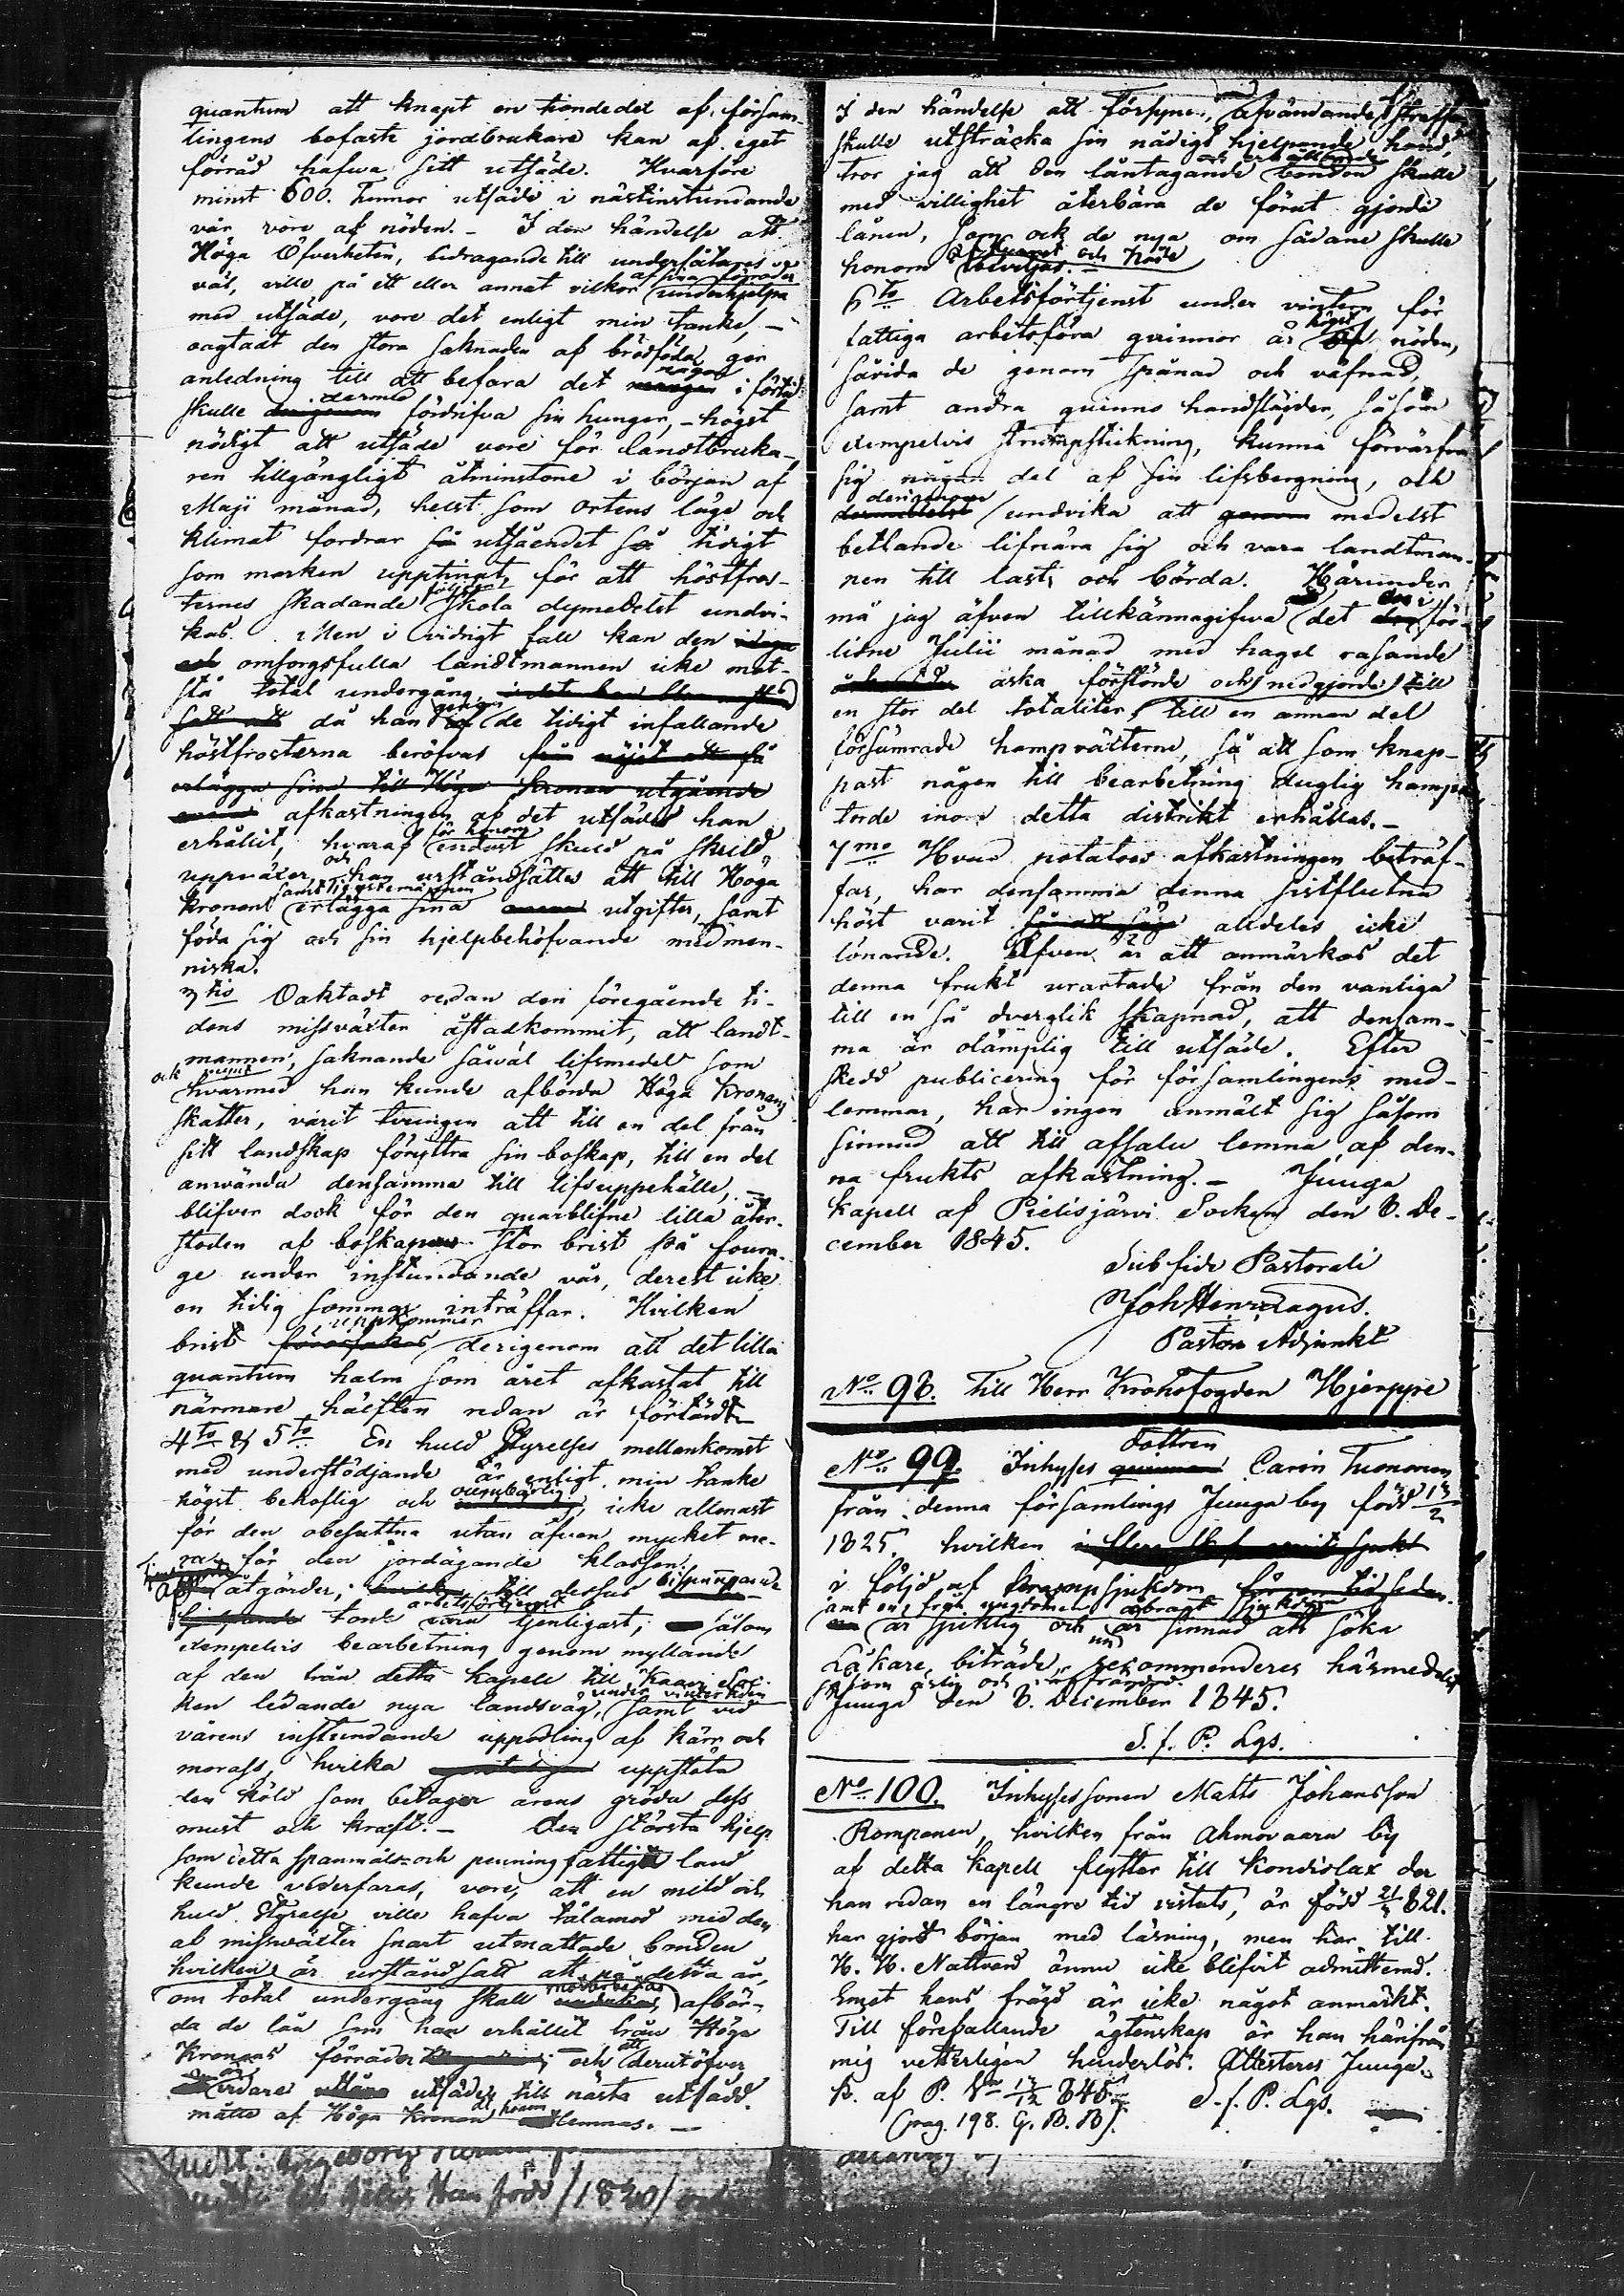 quantum att knapt en tiondedel af försam-
lingens bofaste jordbrukare kan af eget
förråd hafwa sitt utsäde. Hvarföre
minst 600. Tunnor utsäde i nästinstundande
vår vore af nöden. - I den händelse att
Höga Öfverheten, bidragande till undersåtares
väl, ville på ett eller annat vilkor af sina förråder underhjelpa
med utsäde, vore det enligt min tanke, -
oagtadt den stora saknaden af brödföda, ger
anledning till att befara det någon i förtid
skulle dermed fördrifva sin hunger, - högst
nödigt att utsäde vore för landtbruka-
ren tillgängligt åtminstone i början af
Maji månad, helst som ortens läge och
klimat fordrar utsåendet så tidigt
som marken upptinat, för att höstfros-
ternes skadande följder skola dymedelst undvi-
kas. Men i vidrigt fall kan den
omsorgsfulla landtmannen icke mot-
stå total undergång,
då han genom de tidigt infallande
höstfrosterna beröfvas från nöjet att få
erlägga sina till Höga Kronan utgående
afkastningen af det utsäde han
erhållit, hvaraf för honom endast skuld på skuld
uppväxer, och han urståndsättes att till Höga
Kronan samt tjenstemännen erlägga sina utgifter, samt
föda sig och sin hjelpbehöfvande medmen-
niska.
3tio Oaktadt redan den föregående ti-
dens missväxter åstadkommit, att landt-
mannen, saknande såwäl lifsmedel som
och hvarmed han kunde afbörda Höga Kronans
skatter, varit tvungen att till en del från
sitt landskap föryttra sin boskap, till en del
anwända densamma till lifsuppehälle, -
blifver dock för den quarblifne lilla åter-
stoden af boskapen stor brist på foura-
ge under instundande vår, derest icke
en tidig sommar inträffar. Hvilken
brist uppkommer derigenom att det lilla
quantum halm som året afkastat till
närmare hälften redan är förtärdt
4to & 5to En huld Styrelses mellankomst
med understödjande är enligt min tanke
högst behöflig och oumbärlig, icke allenast
för den obesuttna utan äfven mycket me-
ra för den jordägande klassen.
åtgärder, till dessas bispringande
torde arbetsförtjenst vara tjenligast; såsom
exempelvis bearbetning genom myllande
af den från detta kapell till Kaavi Soc-
ken ledande nya landsväg, under vintertiden samt vid
vårens instundande uppodling af kärr och
morass, hvilka uppstöta
den köld som betager årens gröda dess
must och kraft. - Den största hjelp
som detta spanmåls- och penningfattiga land
kunde vederfaras, vore, att en mild och
huld Styrelse ville hafva tålamod med den
af missväxter snart utmattade bonden
hvilken är urståndsatt att på detta år,
om total undergång skall motarbetas afbör-
da de lån som han erhållit från Höga
Kronans förråder och att derutöfver
vidare utsäde till nästa utsädd.
måtte af Höga Kronan åt honom lemnas. -
I den händelse att Försynen, afvändande straffen
skulle utsträcka sin nådigt hjelpande hand,
tror jag att den låntagande och erhållande bonden skulle
med villighet återbära de förut gjorda
lånen, som ock de nya om sådane skulle
honom beviljas. -
6to Arbetsförtjenst under vintern för
fattiga arbetsföra quinnor är högst nöden,
såvida de genom spånad och väfnad,
samt andra quinno handslögder, såsom
exempelvis strumpstickning, kunna förvärfva
sig någon del af sin lifsbergning, och
derigenom undvika att medelst
betlande lifnära sig och vara landtman-
nen till last och börda. Härunder
må jag äfven tillkännagifwa det i för-
lidne Julii månad med hagel rasande
åska förstörde och nedgjorde till
en stor del totaliter, till en annan del
försämrade hampväxterne, så att som knap-
past någon till bearbetning duglig hampa
torde inom detta distrikt erhållas. -
7mo Hvad potatoes afkastningen beträf-
far, har densamma denna sistflutna
höst varit alldeles icke
lönande. Äfven är att anmärkas det
denna frukt urartade från den vanliga
till en så dverglik skapnad, att densam-
ma är olämplig till utsäde. Efter
skedd publicering för församlingens med-
lemmar, har ingen anmält sig såsom
sinnad att till afsalu lemna af den-
na frukts afkastning. - Juuga
kapell af Pielisjärvi Socken den 8. De-
cember 1845.
Sub fide Pastorali
Joh Henr Lagus.
Pastors Adjunkt
No 98. Till Herr Kronofogden Hjerppe
No 99. Inhyses dottren Carin Tuononen
från denna församlings Juuga by född 13/2
1825. hvilken
i följd af krampsjukdom
är sjuklig och är sinnad att söka
Läkare biträde, rekommenderes härmedelst
såsom ärlig och
Juuga den 8. December 1845.
S. f. P. Lgs.
No 100. Inhysessonen Matts Johansson
Romponen, hvilken från Ahmovaara by
af detta kapell flytter till Kondiolax der
han redan en längre tid vistats, är född 821.
har gjort början med läsning, men har till
H. H. Nattvard ännu icke blifvit admitterad.
Emot hans frägd är icke något anmärkt.
Till förefallande ägtenskap är han härifrån
mig vetterligen hinderlös. Attesteres Juuga.
K. af P. Sn 845. S. f. P. Lgs.
(pag. 198. G. B. B).